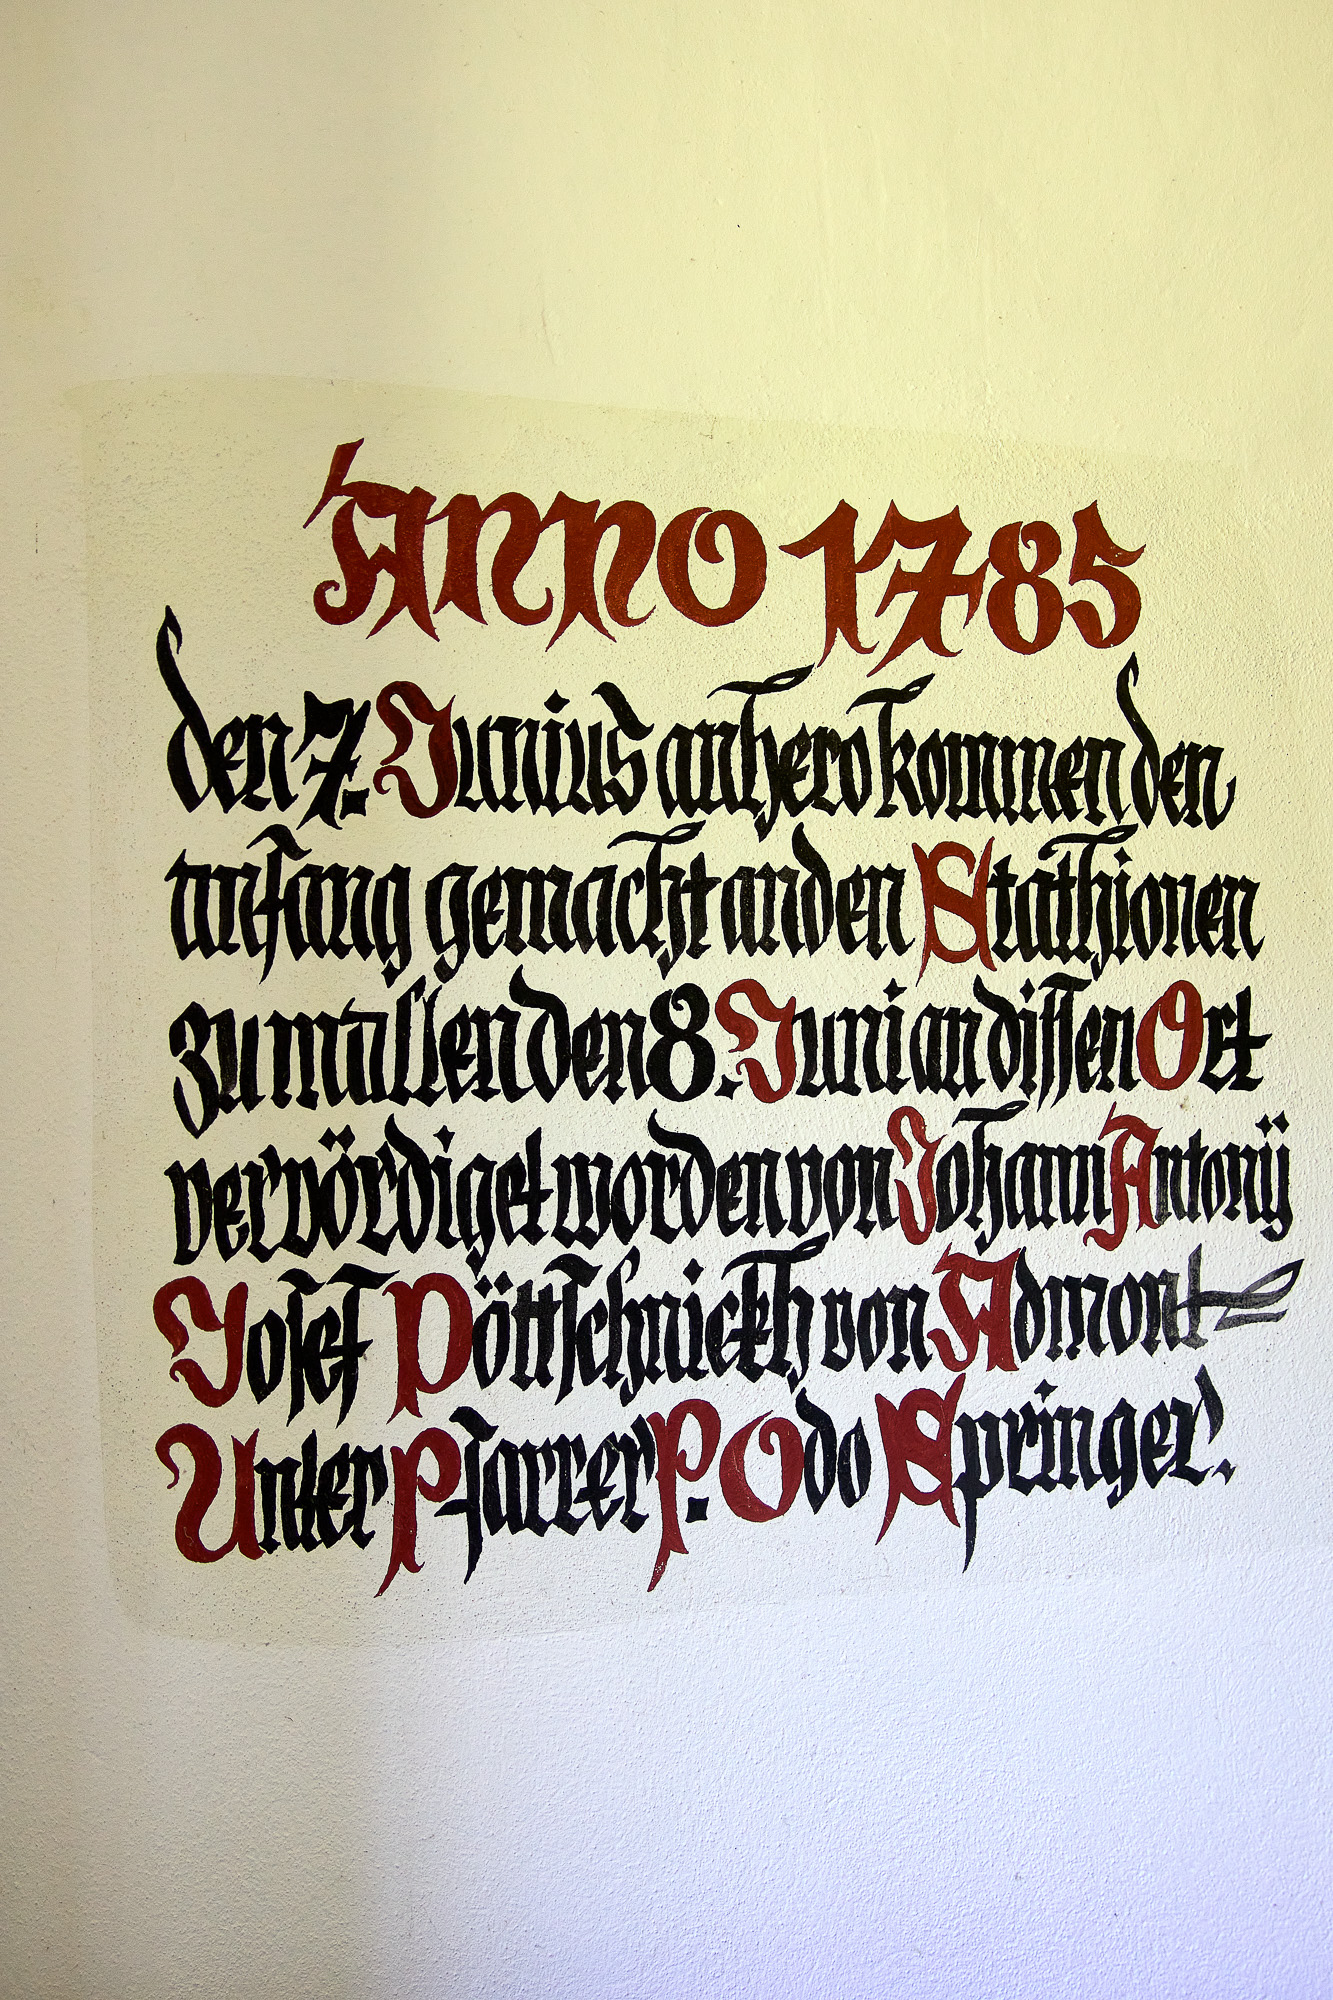 Anno 1785
den 7. Junius anhero kommen den
anfang gemacht an den Stathionen
zu mallen den 8. Juni an dissen Ort
vervördiget worden von Johann Antonÿ
Josef Pöttschnickh von Admont
Unter Pfarrer P. Odo Springer.